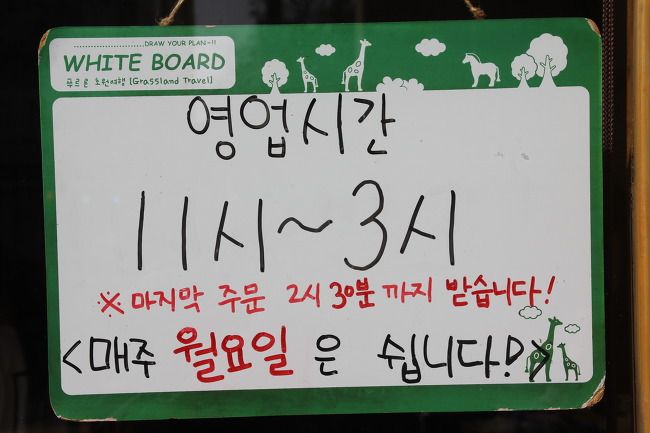 DRAW YOUR PLAN~!!
WHITE BOARD
푸르른 초원여행 [Grassland Travel]
영업시간
11시~3시
※ 마지막 주문 2시 30분까지 받습니다!
<매주 월요일은 쉽니다!>